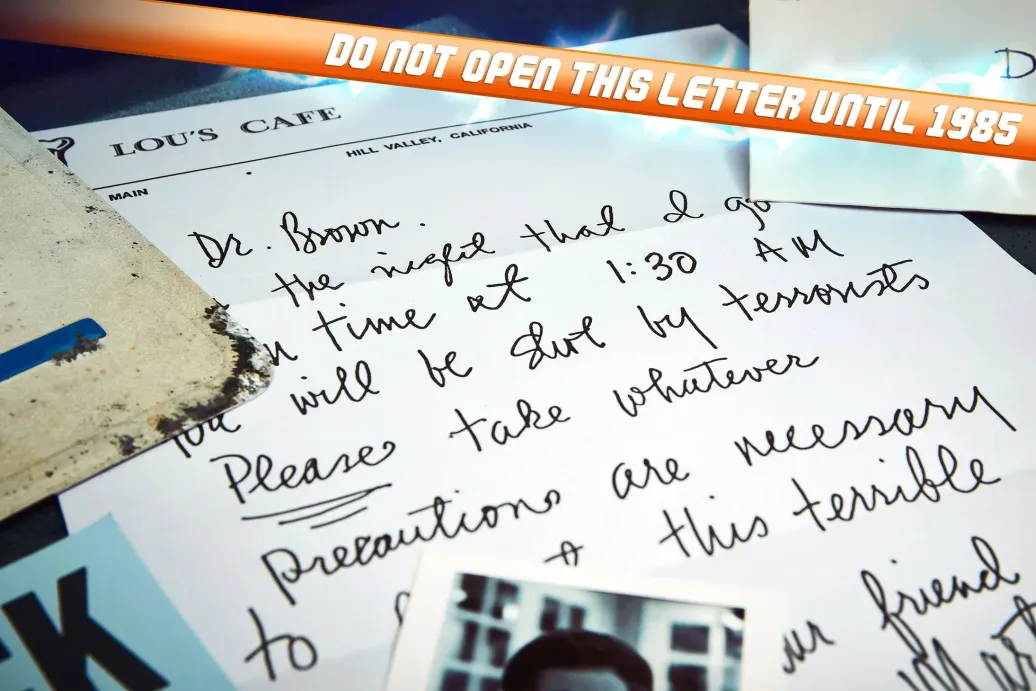 DO NOT OPEN THIS LETTER UNTIL 1985
LOU'S CAFE
HILL VALLEY, CALIFORNIA
MAIN
Dr. Brown.
the night that I go
time at 1:30 AM
you will be shot by terrorists
Please take whatever
precautions are necessary
to this terrible
friend